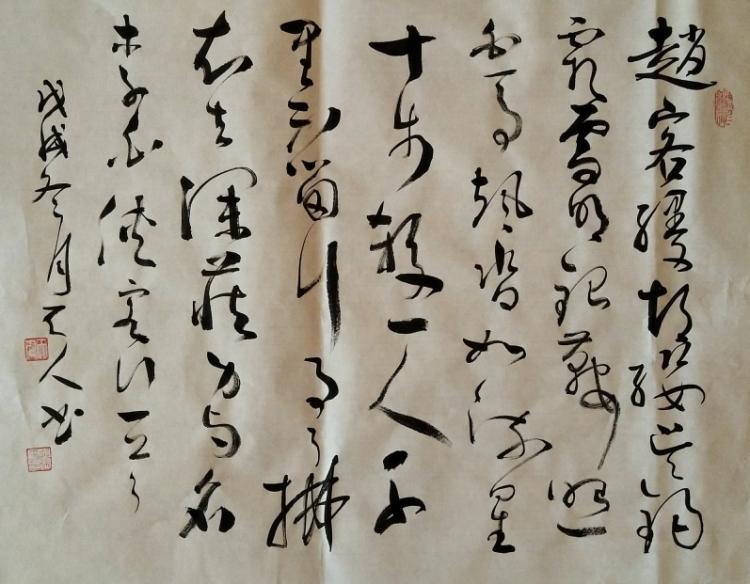 趙客縵胡纓吳鉤
霜雪明銀鞍照
白馬颯沓如流星
十步殺一人千
里不留行事了拂
衣去深藏身与名
李白俠客行一
戊戌冬月人书